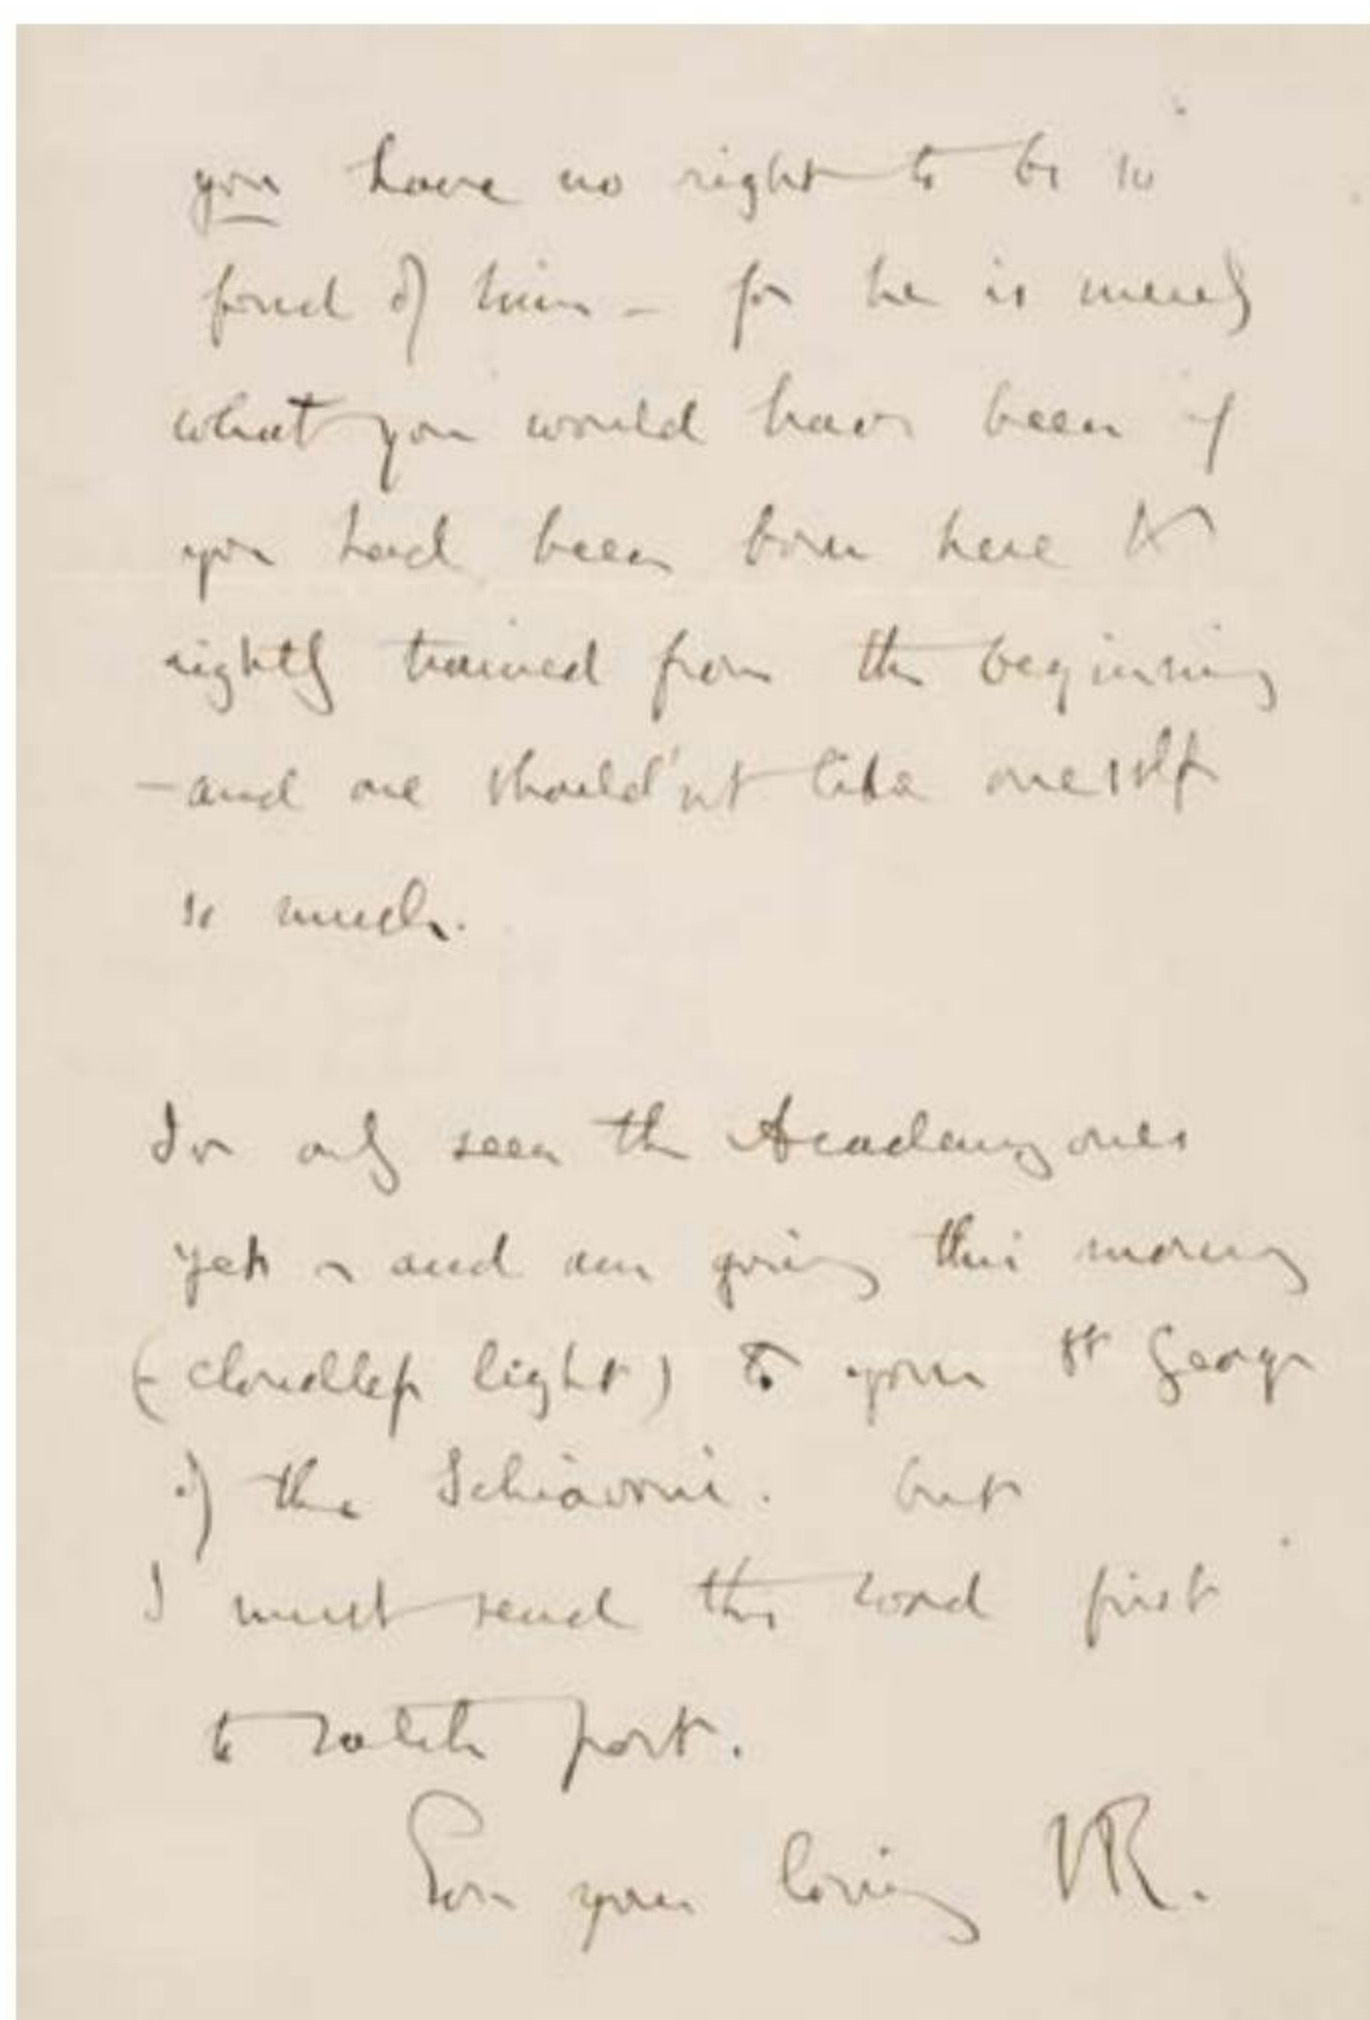 you have no right to be so
fond of him – for he is merely
what you would have been if
you had been born here &
rightly trained from the beginning
– and one should'nt like oneself
so much.
I've only seen the Academy ones
yet – and am going this morning
(– cloudless light) to your St George
of the Schiavoni. but
I must send this word first
to catch post.
Ever your loving JR.